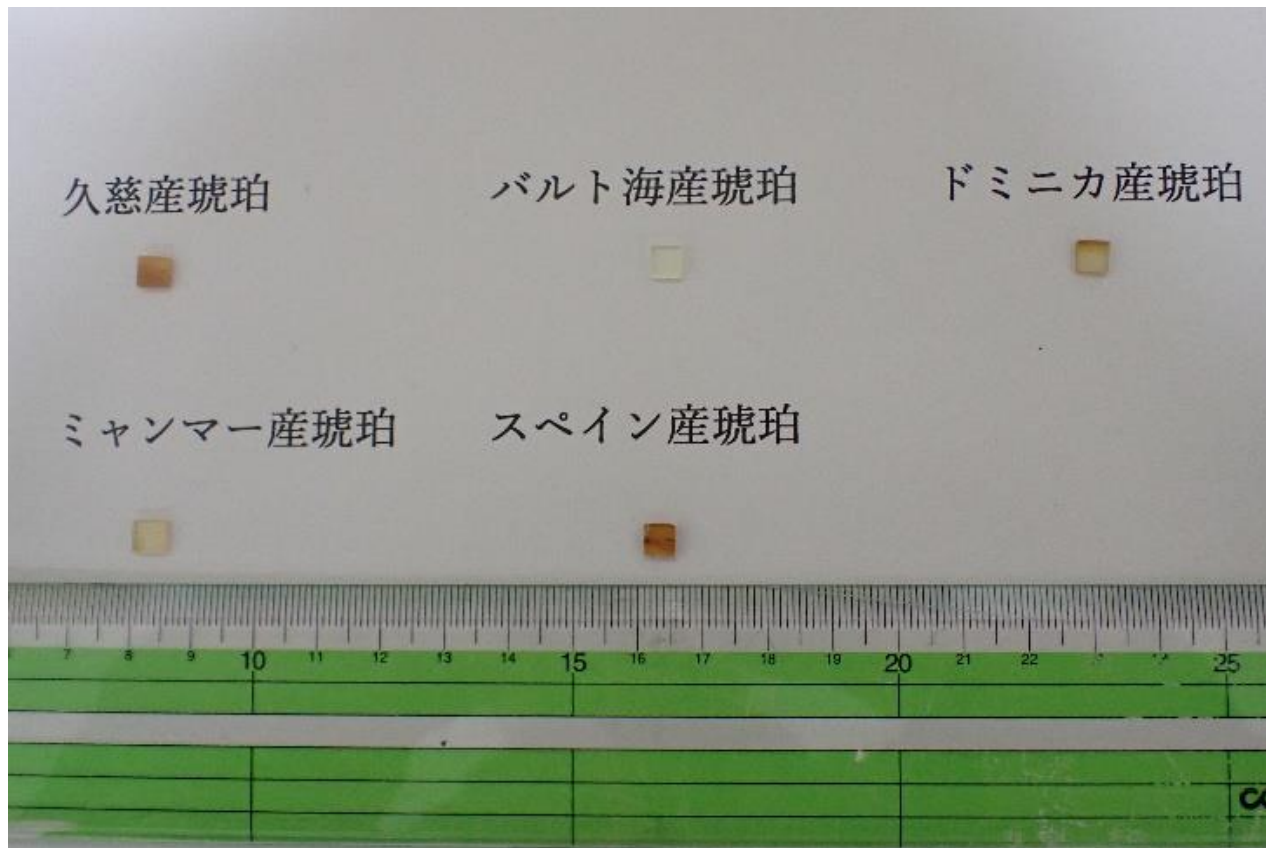 久慈産琥珀
バルト海産琥珀
ドミニカ産琥珀
ミャンマー産琥珀
スペイン産琥珀
7 8 9 10 11 12 13 14 15 16 17 18 19 20 21 22 25